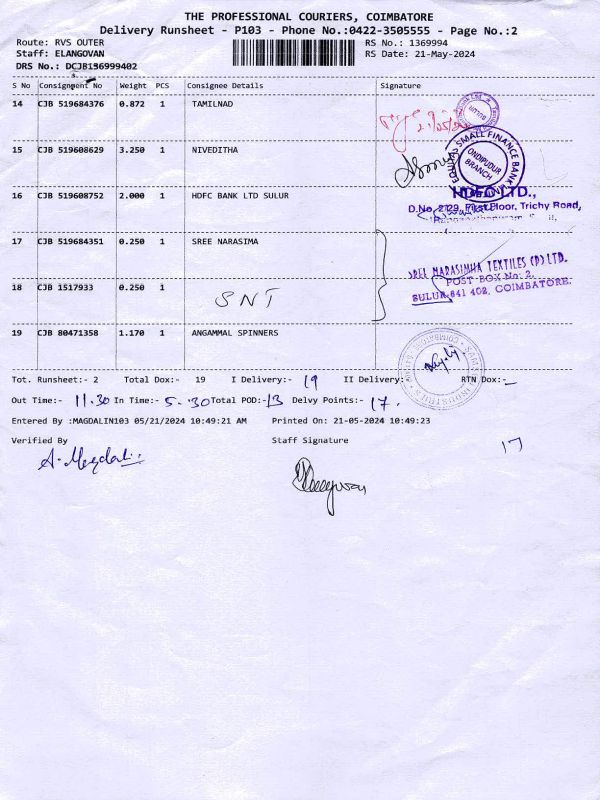 THE PROFESSIONAL COURIERS, COIMBATORE
Delivery Runsheet - P103 - Phone No.:0422-3505555 - Page No.:2
Route: RVS OUTER
RS No.: 1369994
Staff: ELANGOVAN
RS Date: 21-May-2024
DRS No.: DCJB136999402
S No Consignment No Weight PCS Consignee Details Signature
14 CJB 519684376 0.872 1 TAMILNAD
15 CJB 519608629 3.250 1 NIVEDITHA
EQUITAS SMALL FINANCE BANK
ONDIPUDUR
BRANCH
16 CJB 519608752 2.000 1 HDFC BANK LTD SULUR
HDFC LTD.,
D.No. 2/29, First Floor, Trichy Road,
17 CJB 519684351 0.250 1 SREE NARASIMA
SREE NARASIMHA TEXTILES (P) LTD.
POST BOX No: 2,
SULUR-641 402, COIMBATORE.
18 CJB 1517933 0.250 1
SNT
19 CJB 80471358 1.170 1 ANGAMMAL SPINNERS
Tot. Runsheet:- 2 Total Dox:- 19 I Delivery:- 19 II Delivery:- RTN Dox:-
Out Time:- 11.30 In Time:- 5.30 Total POD:- 13 Delvy Points:- 17.
Entered By :MAGDALIN103 05/21/2024 10:49:21 AM Printed On: 21-05-2024 10:49:23
Verified By Staff Signature
17
A. Magdali